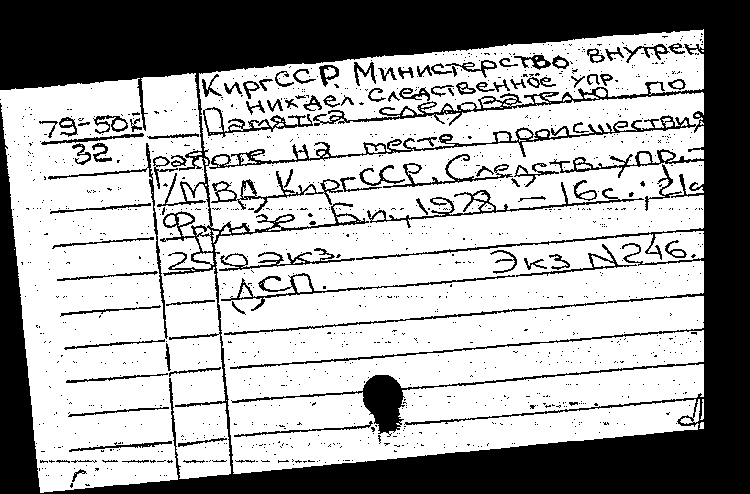 КиргССР. Министерство внутрен
них дел. Следственное упр.
79-50к Памятка следователю по
32. работе на месте происшествия
/МВД КиргССР. Следств. упр. -
Фрунзе: Б.и., 1978. - 16с.; 21с
250 экз. Экз N246.
ДСП.